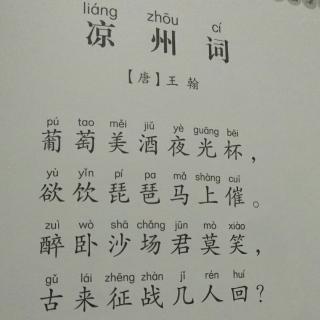 liáng zhōu cí
凉州词
【唐】王翰
pú tao měi jiǔ yè guāng bēi
葡萄美酒夜光杯，
yù yǐn pí pa mǎ shàng cuī
欲饮琵琶马上催。
zuì wò shā chǎng jūn mò xiào
醉卧沙场君莫笑，
gǔ lái zhēng zhàn jǐ rén huí
古来征战几人回？